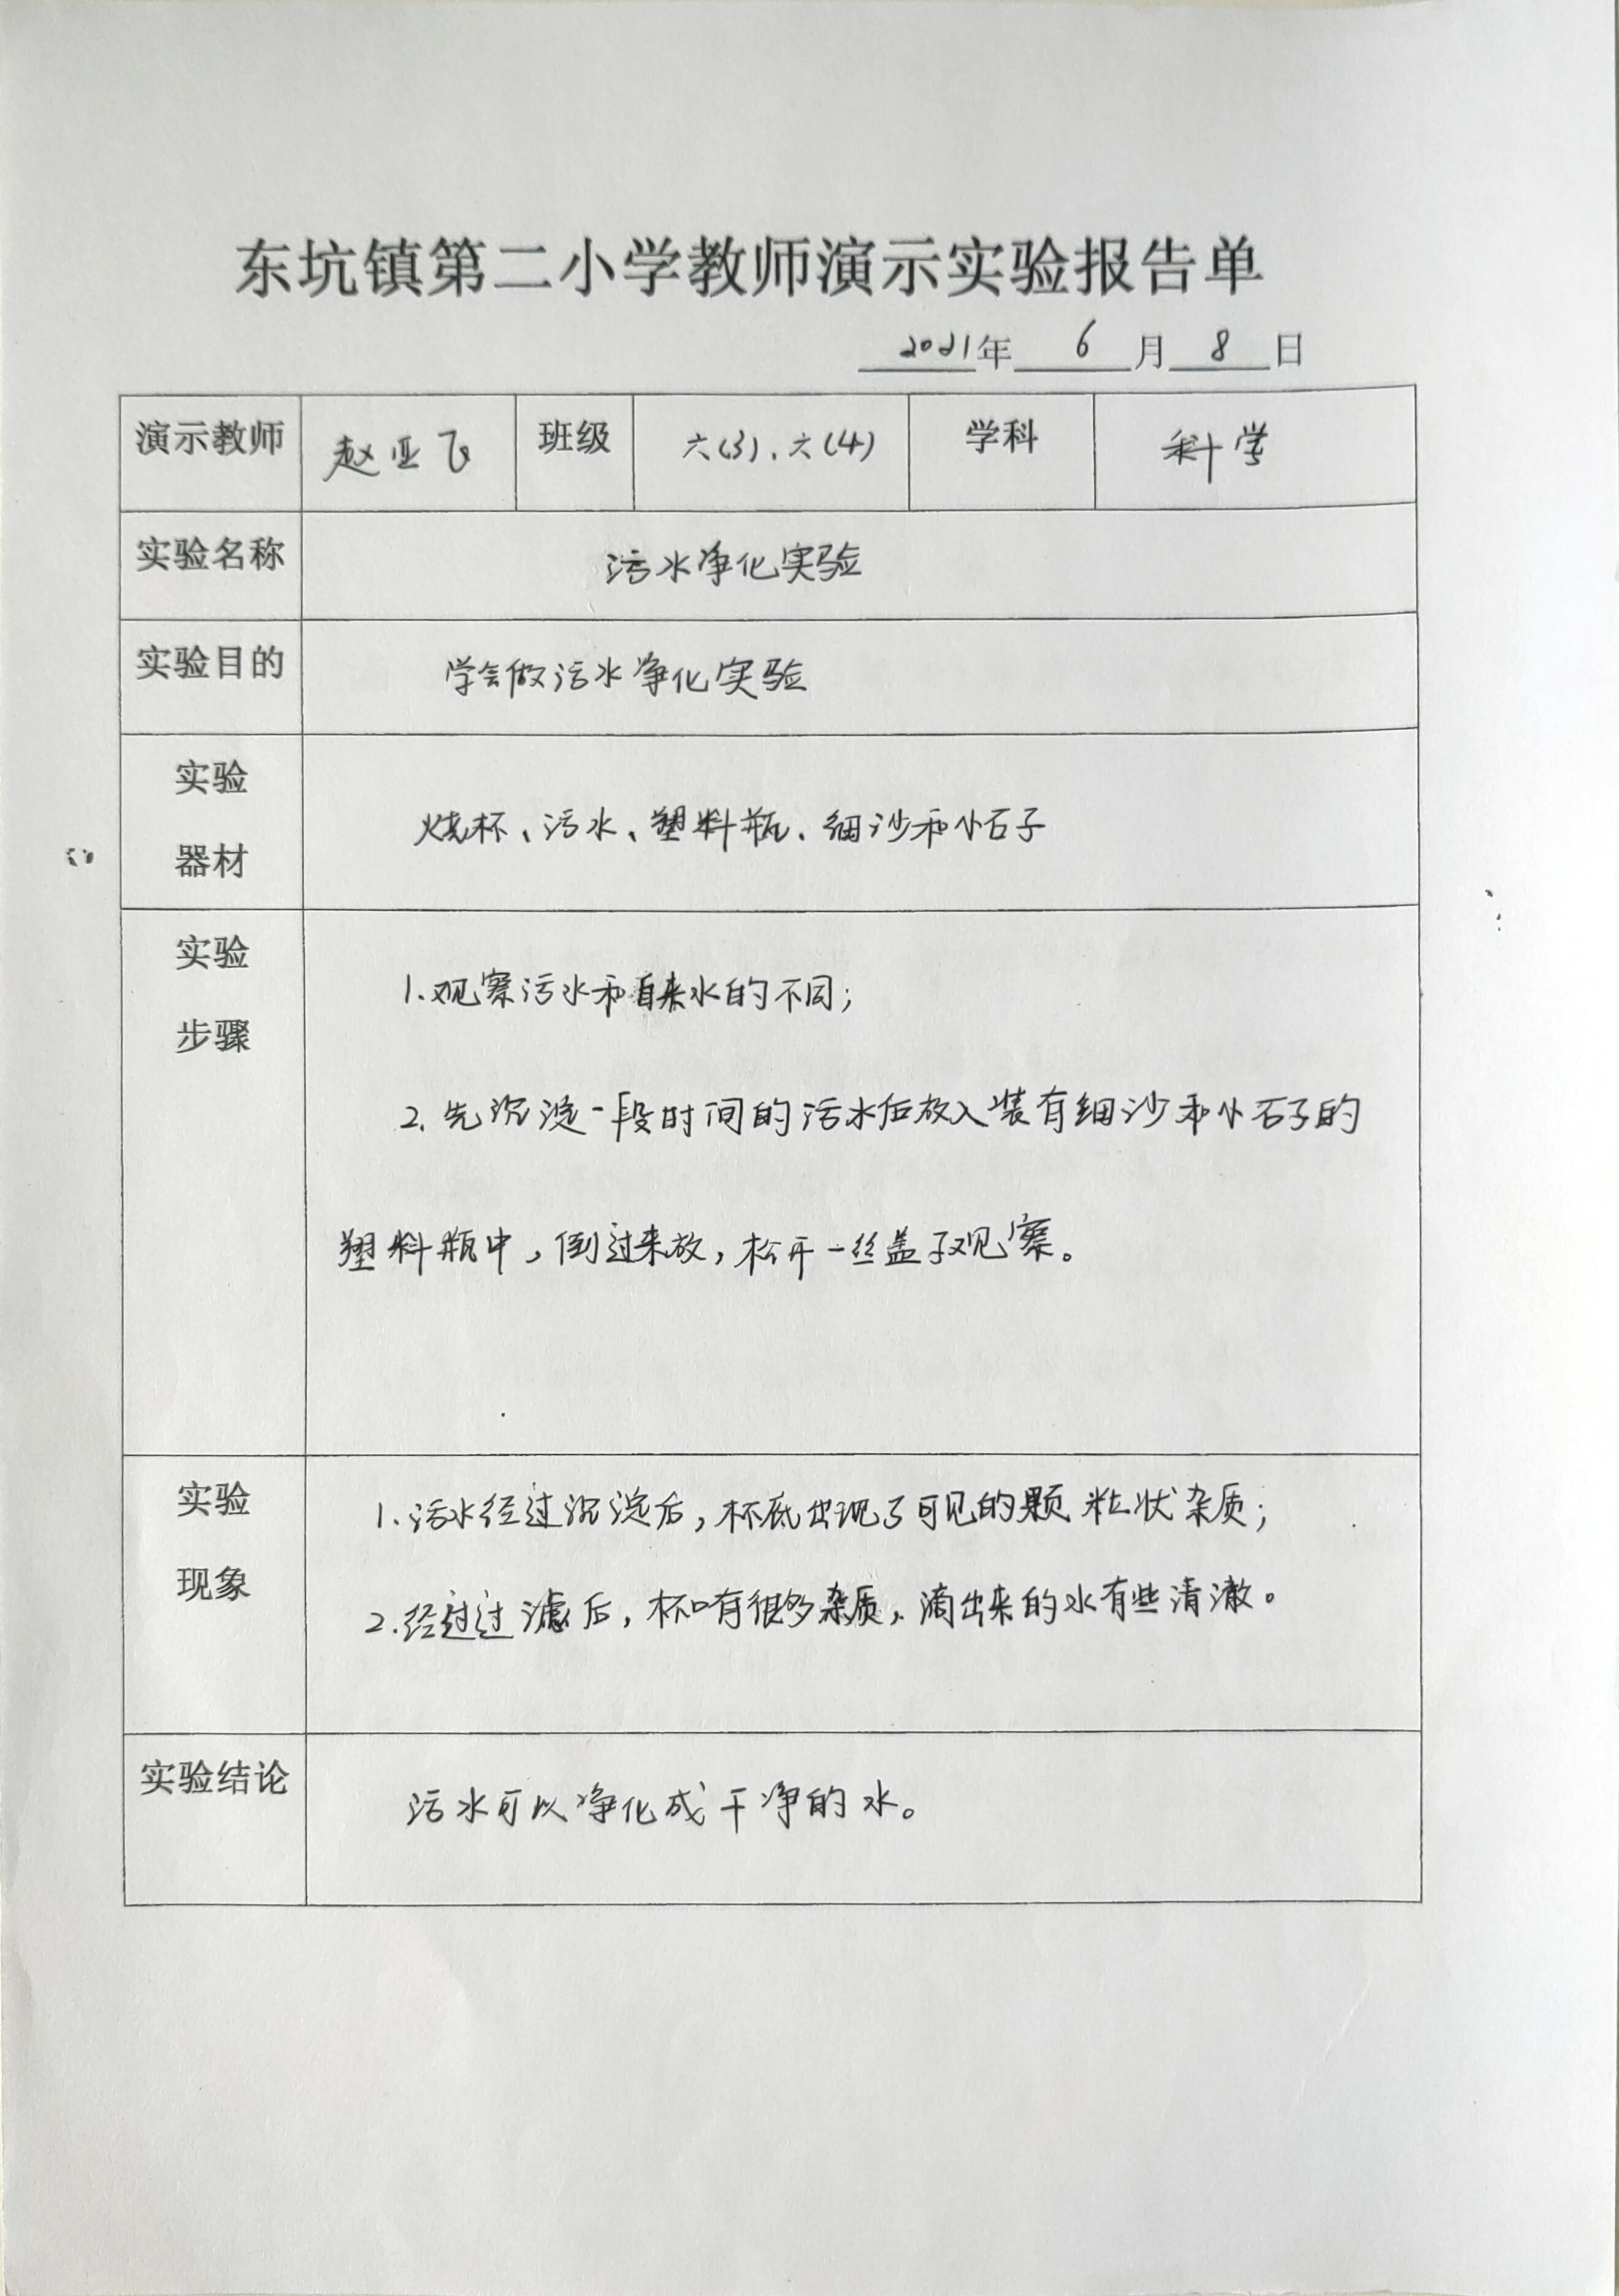 东坑镇第二小学教师演示实验报告单
2021年 6 月 8 日
演示教师 赵亚飞 班级 六(3)、六(4) 学科 科学
实验名称 污水净化实验
实验目的 学会做污水净化实验
实验
器材
烧杯、污水、塑料瓶、细沙和小石子
实验
步骤
1.观察污水和自来水的不同;
2.先沉淀一段时间的污水后放入装有细沙和小石子的
塑料瓶中,倒过来放,松开一丝盖子观察。
实验
现象
1.污水经过沉淀后,杯底出现了可见的颗粒状杂质;
2.经过过滤后,杯口有很多杂质,滴出来的水有些清澈。
实验结论 污水可以净化成干净的水。